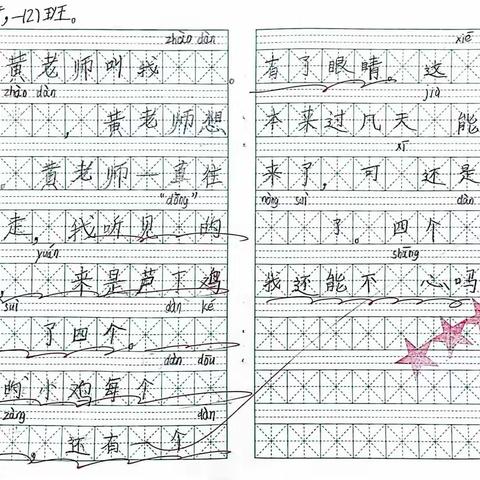 一(2)班。
zhào dàn
黄老师叫我。
zhào dàn
，黄老师想
。黄老师一直往
"dōng"
走，我听见 的
yuán
，来是芦下鸡
suì dàn ké
了四个。
dàn dōu
的小鸡每个
zāng dàn
，还有一个
xiē
有了眼睛。这
jiù
本来过几天 能
xī
来了，可 还是
nòng suì dàn
了。四个
shāng
我还能不 心吗